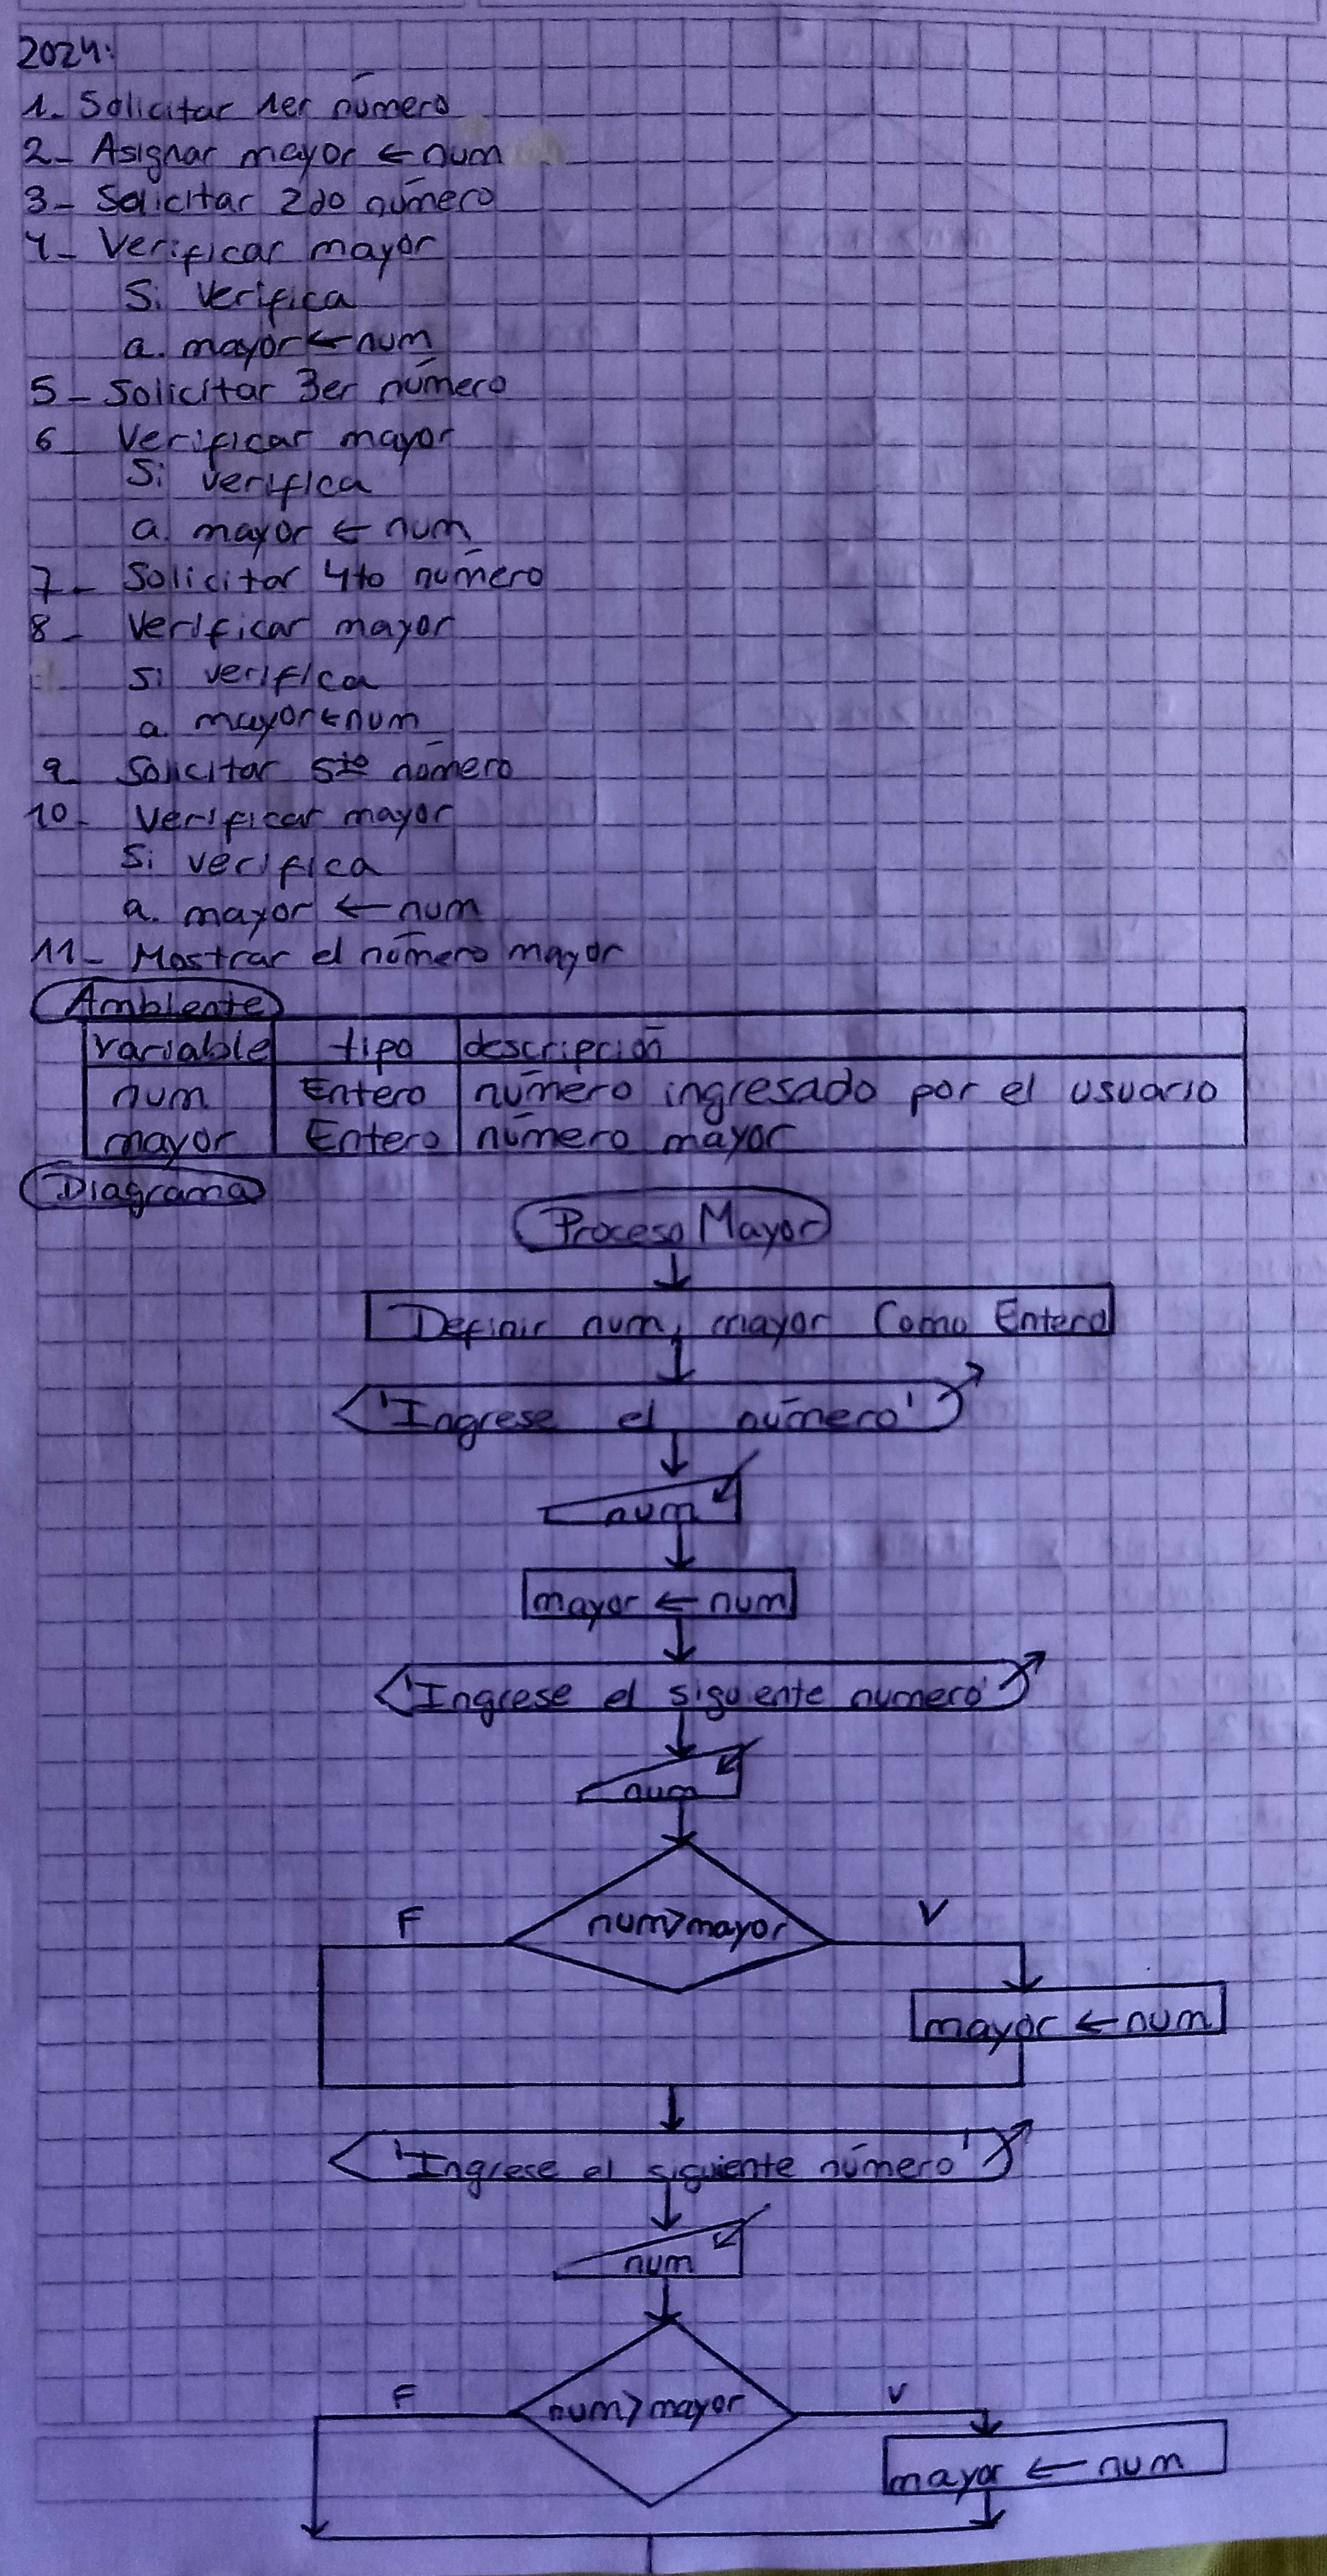 2024:
1- Solicitar 1er número
2- Asignar mayor ← num
3- Solicitar 2do número
4- Verificar mayor
Si verifica
a. mayor ← num
5- Solicitar 3er número
6- Verificar mayor
Si verifica
a. mayor ← num
7- Solicitar 4to número
8- Verificar mayor
Si verifica
a. mayor ← num
9- Solicitar 5to número
10- Verificar mayor
Si verifica
a. mayor ← num
11- Mostrar el número mayor
Ambiente
variable tipo descripción
num Entero número ingresado por el usuario
mayor Entero número mayor
Diagrama
Proceso Mayor
Definir num, mayor Como Entero
'Ingrese el número'
num
mayor ← num
'Ingrese el siguiente numero'
num
F num>mayor V
mayor ← num
'Ingrese el siguiente número'
num
F num>mayor V
mayor ← num